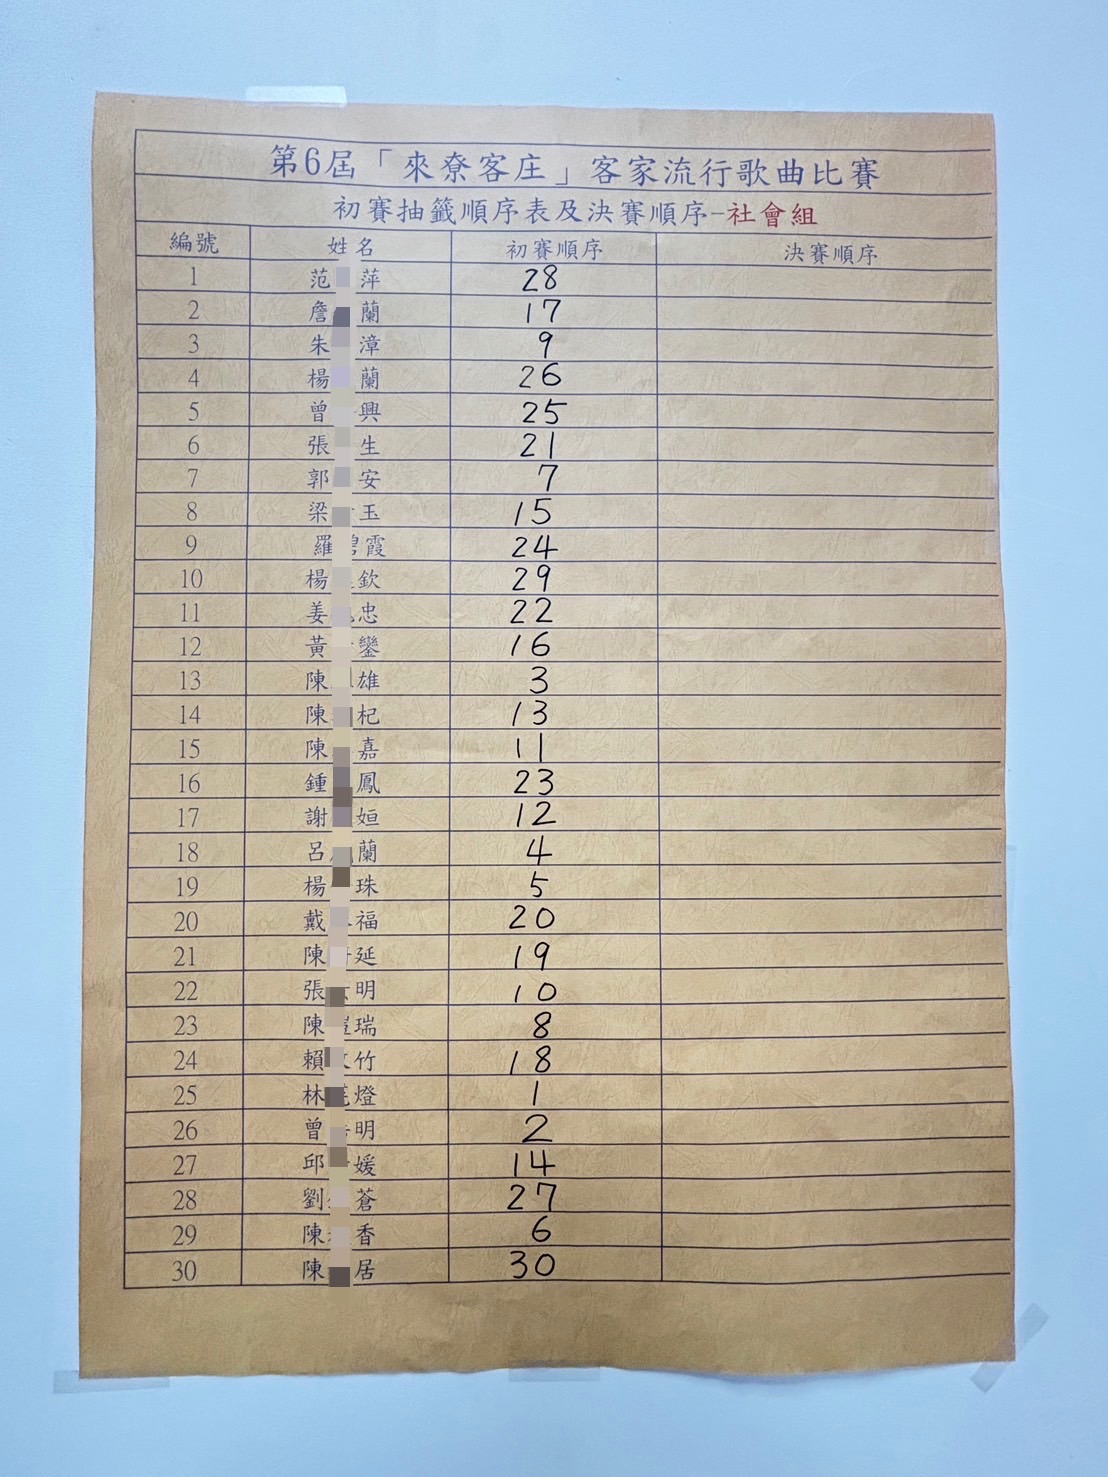 第6屆「來尞客庄」客家流行歌曲比賽
初賽抽籤順序表及決賽順序-社會組
編號 姓名 初賽順序 決賽順序
1 范 萍 28
2 詹 蘭 17
3 朱 漳 9
4 楊 蘭 26
5 曾 興 25
6 張 生 21
7 郭 安 7
8 梁 玉 15
9 羅 霞 24
10 楊 欽 29
11 姜 忠 22
12 黃 鑾 16
13 陳 雄 3
14 陳 杞 13
15 陳 嘉 11
16 鍾 鳳 23
17 謝 姮 12
18 呂 蘭 4
19 楊 珠 5
20 戴 福 20
21 陳 延 19
22 張 明 10
23 陳 瑞 8
24 賴 竹 18
25 林 燈 1
26 曾 明 2
27 邱 媛 14
28 劉 蒼 27
29 陳 香 6
30 陳 居 30